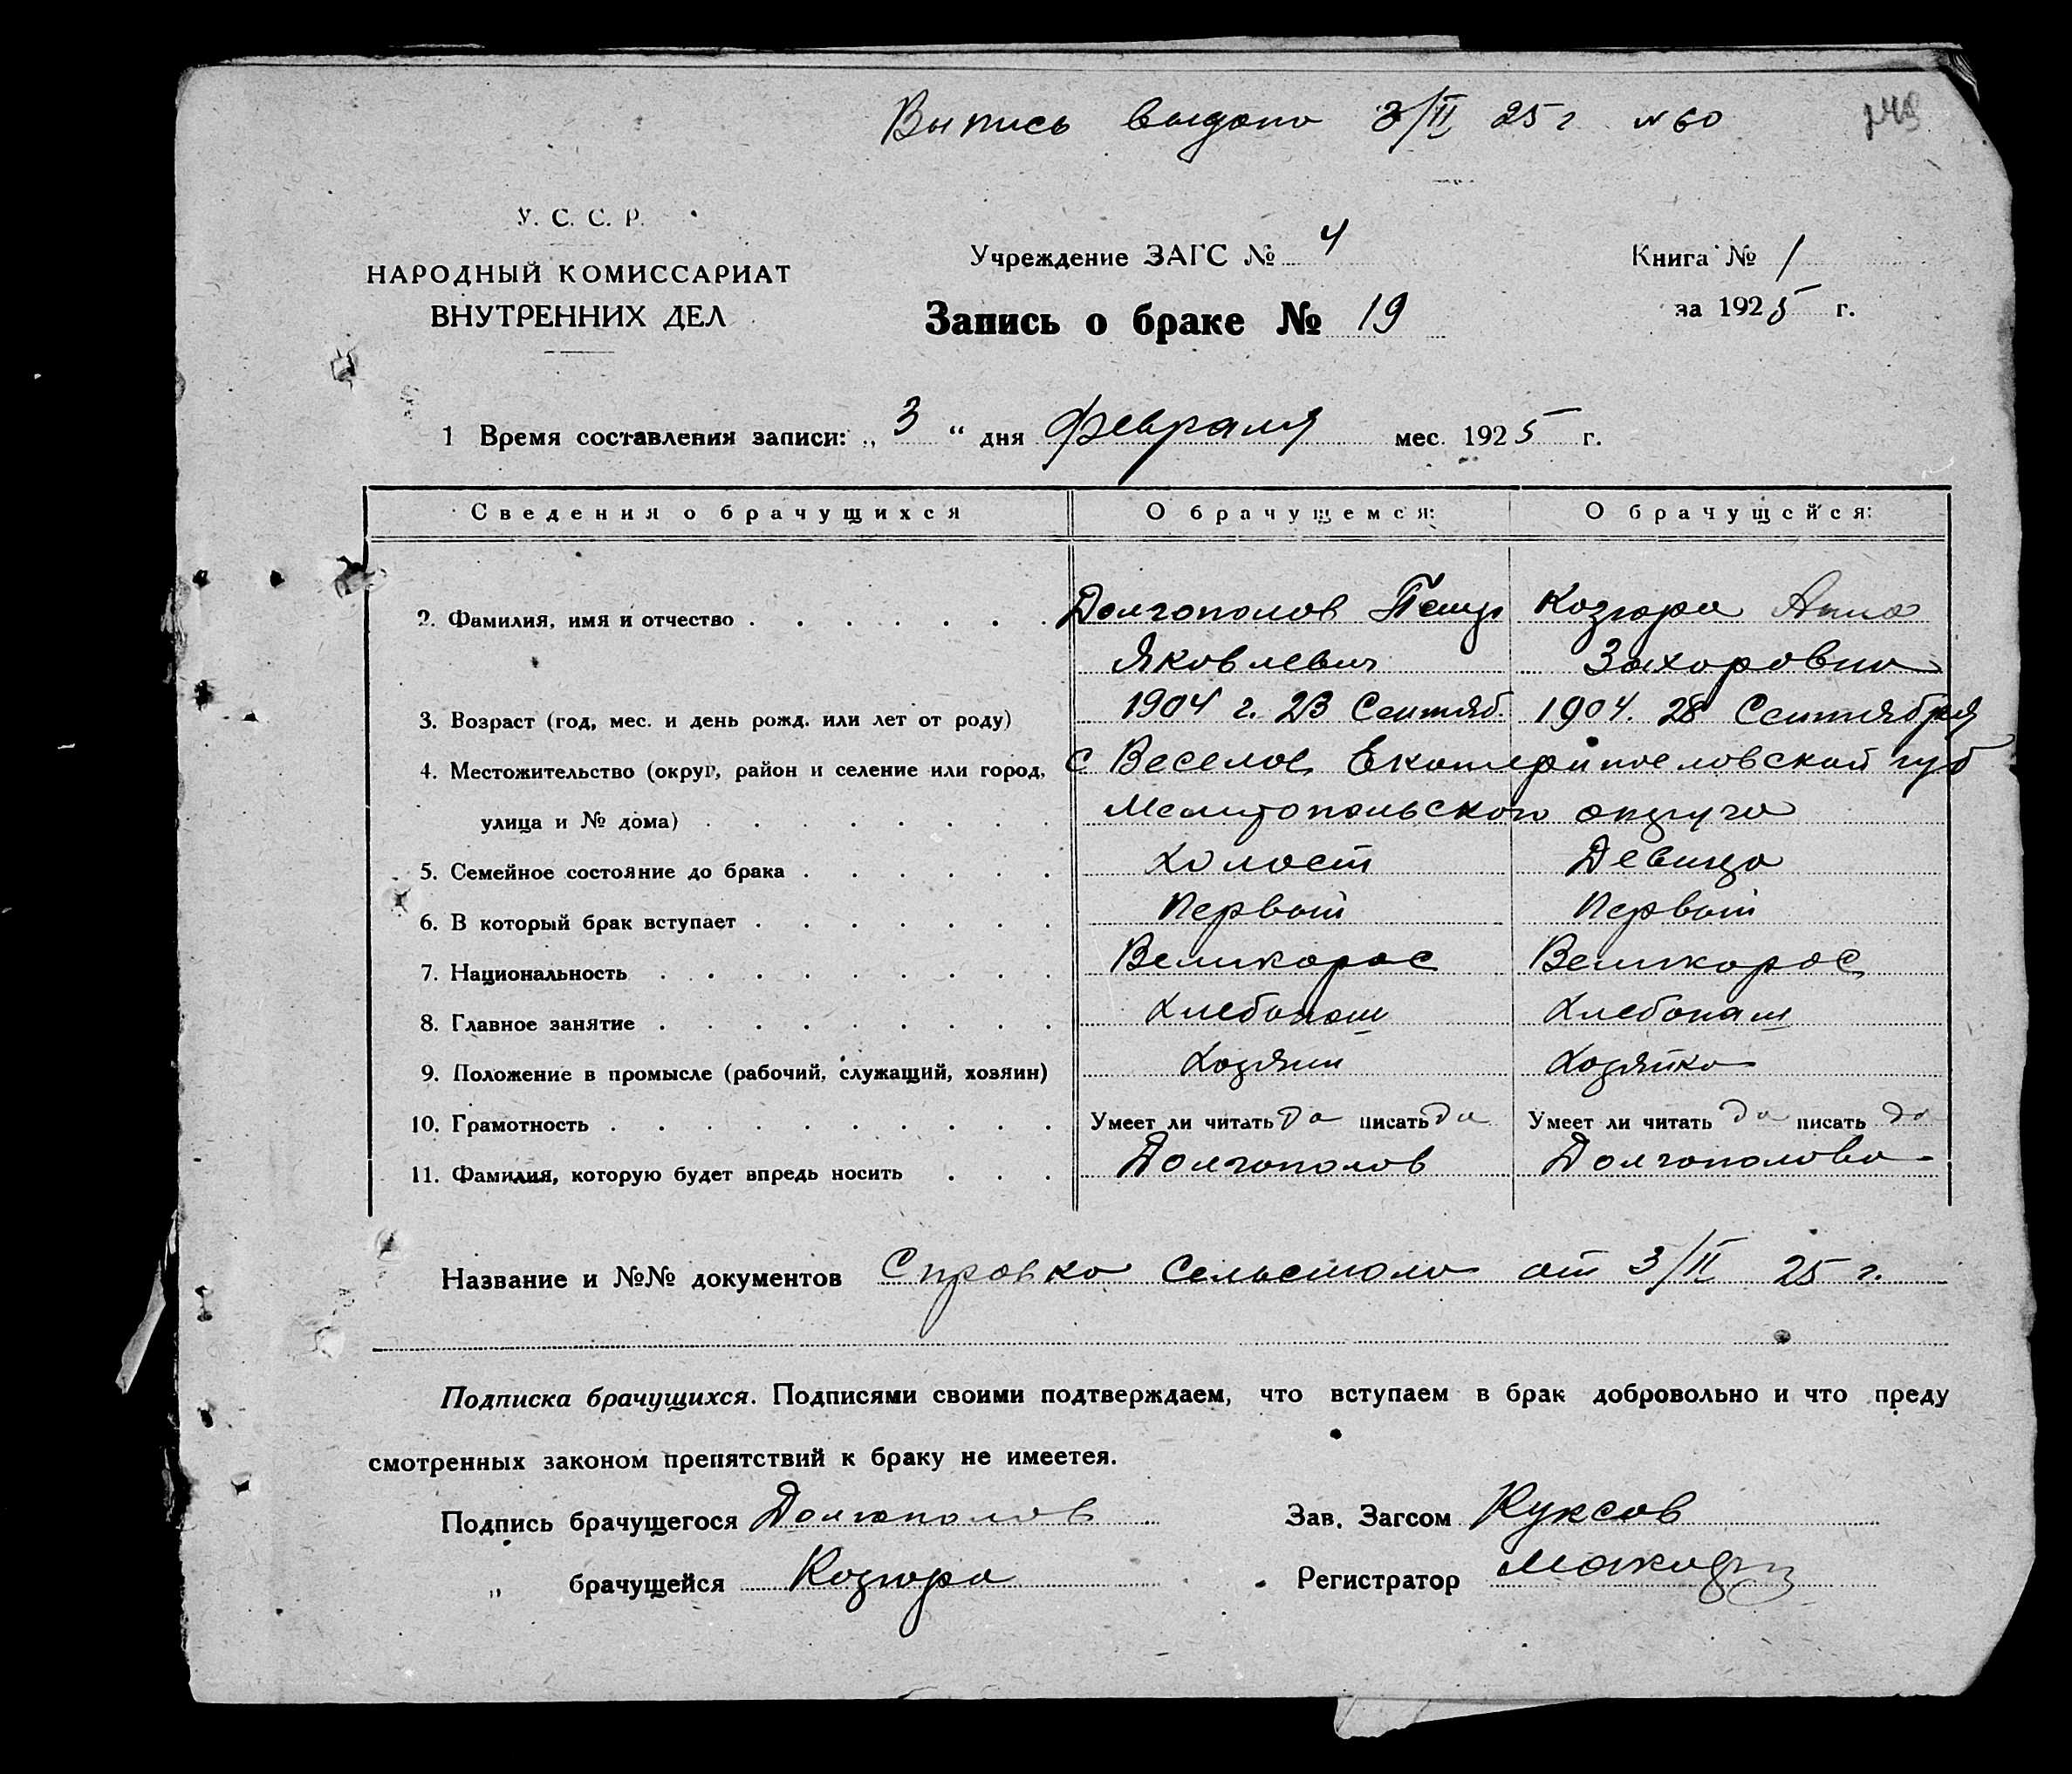 Выпись выдано 3/II 25 г N 60
У. С. С. Р.
НАРОДНЫЙ КОМИССАРИАТ
ВНУТРЕННИХ ДЕЛ
Учреждение ЗАГС № 4
Книга № 1
Запись о браке № 19
за 1925 г.
1 Время составления записи: „ 3 “ дня февраля мес. 1925 г.
Сведения о брачущихся О брачущемся: О брачущейся:
2. Фамилия, имя и отчество Долгополов Петр Козюра Анна
Яковлевич Захоровно
3. Возраст (год, мес. и день рожд. или лет от роду) 1904 г. 23 Сентяб. 1904. 28 Сентября
4. Местожительство (округ, район и селение или город, с Веселое Екатеринославской губ
улица и № дома) Мелитопольского округа
5. Семейное состояние до брака Холост Девица
6. В который брак вступает Первый Первый
7. Национальность Великорос Великорос
8. Главное занятие Хлебопаш Хлебопаш
9. Положение в промысле (рабочий, служащий, хозяин) Хозяин Хозяйка
10. Грамотность Умеет ли читать да писать да Умеет ли читать да писать да
11. Фамилия, которую будет впредь носить Долгополов Долгополова
Название и №№ документов Справка Сельстола от 3/II 25 г.
Подписка брачущихся. Подписями своими подтверждаем, что вступаем в брак добровольно и что преду
смотренных законом препятствий к браку не имеетея.
Подпись брачущегося Долгополов Зав. Загсом Куксов
„ брачущейся Козюра Регистратор